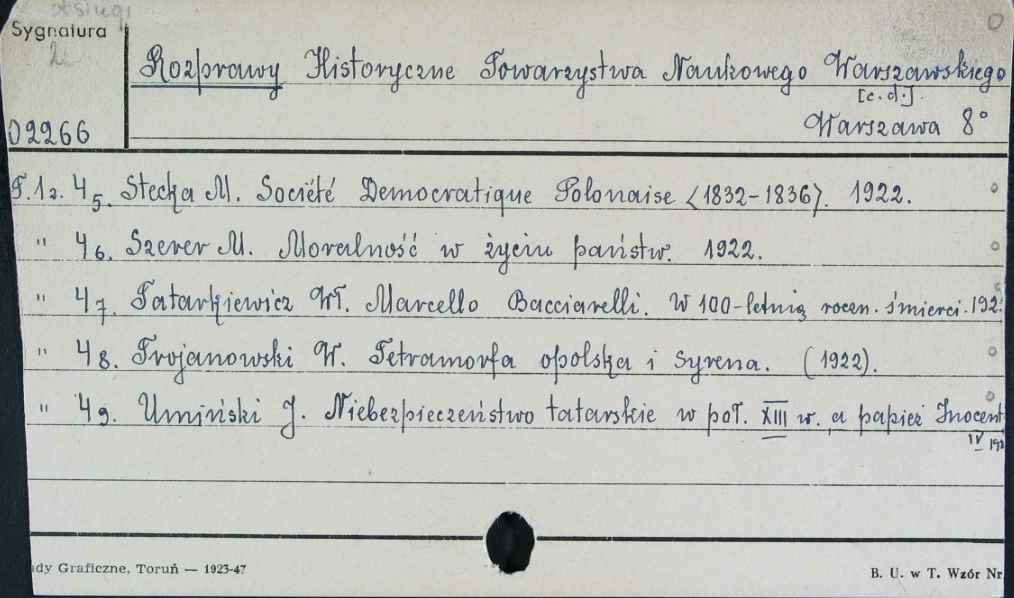 Sygnatura
Rozprawy Historyczne Towarzystwa Naukowego Warszawskiego
[c.d.].
02266 Warszawa 8°
T.1z. 4 5. Stecka M. Société Democratique Polonaise <1832-1836>. 1922.
" 4 6. Szerer M. Moralność w życiu państw. 1922.
" 4 7. Tatarkiewicz Wł. Marcello Bacciarelli. W 100-letnią roczn. śmierci. 192
" 4 8. Trojanowski W. Tetramorfa opolska i syrena. (1922).
" 4 9. Umiński J. Niebezpieczeństwo tatarskie w poł. XIII w. a papież Inocent
IV 192
dy Graficzne, Toruń — 1923-47
B. U. w T. Wzór Nr